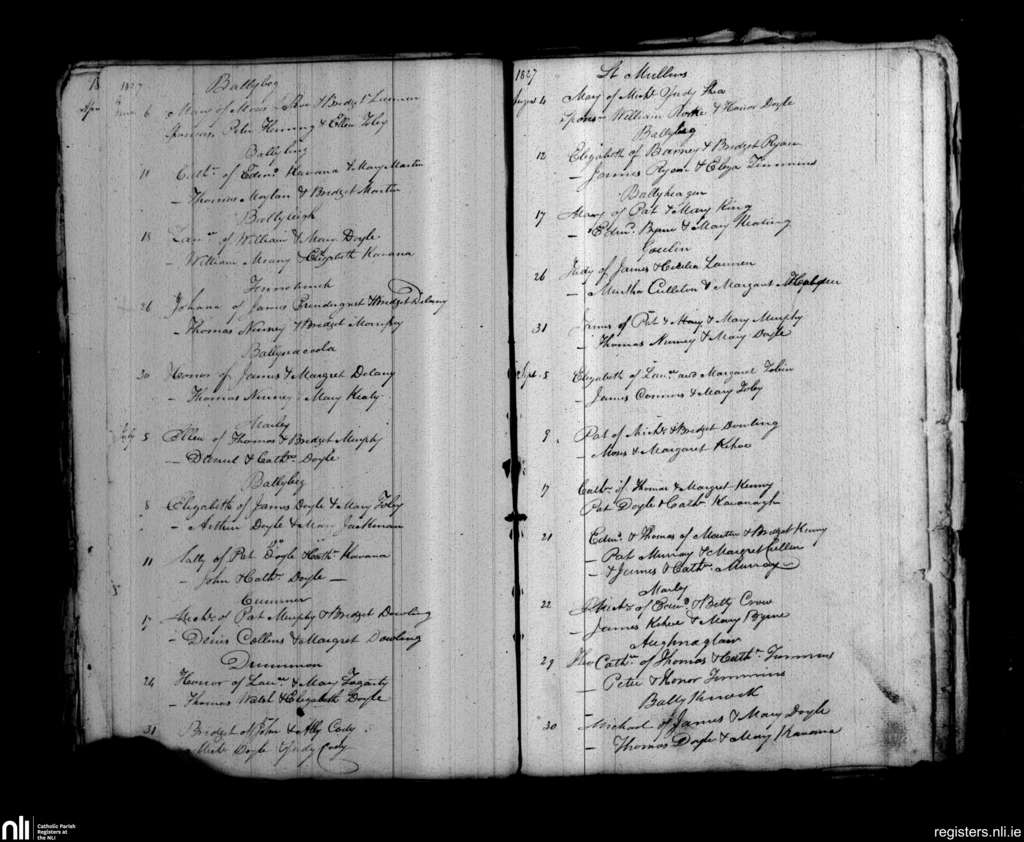 1827
Ballybeg
June 6 Mary of Moses & Bridget
Sponsors Peter & Ellen Foley
Ballybeg
11 Cathn. of Edmd. Kavana & Mary Martin
– Thomas & Bridget Martin
Ballyleigh
18 Lau.ce of William & Mary Doyle
– William Meany & Elizabeth Kavana
Tennehinch
26 Johana of James Prendergest & Bridget Delany
– Thomas Nuney & Bridget Murphy
Ballynacoola
30 Honor of James & Margret Delany
– Thomas Nunney Mary Kealy
Marley
July 5 Ellen of Thomas & Bridget Murphy
– Daniel & Cathn. Doyle
Ballybeg
8 Elizabeth of James Doyle & Mary Foley
– Arthur Doyle & Mary Jackman
Do
11 Sally of Pat Doyle & Cathn. Kavana
– John & Cathn. Doyle –
Cummer
17 Michl. of Pat Murphy & Bridget Dowling
– Denis Collins & Margret Dowling
Drummin
24 Honor of & Mary Fogarty
– Thomas Walsh & Elizabeth Doyle
31 Bridget of John & Ally Cody
Michl. Doyle & Judy Cody
1827 St Mullins
August 4 Mary of Michl. & Judy Shea
Sponsors William Roche & Honor Doyle
Ballybeg
12 Elizabeth of Barney & Bridget Ryan
– James Ryan & Eliza Timmins
17 Mary of Pat & Mary King
– Edmd. Byrne & Mary Keating
26 Judy of James & Cecilia
– Murtha Culleton & Margaret
31 James of Pat & Mary & Mary Murphy
– Thomas Nunney & Mary Doyle
Sept. 5 Elizabeth of and Margaret Tobin
– James Connors & Mary Foley
9 Pat of Michl. & Bridget Dowling
– Moses & Margaret Kehoe
17 Cathn. of Thomas & Margret Kenny
Pat Doyle & Cathn. Kavanagh
21 Edmd. & Thomas of Martin & Bridget Kenny
– Pat Murray & Margret Cullen
– & James & Cathn. Murray –
Marley
22 Michl. of Edmd. & Betty Crow
– James Kehoe & Mary Byrne
Aughnaglan
29 Cathn. of Thomas & Cathn. Timmins
– Peter & Honor Timmins
Ballyknock
30 Michael of James & Mary Doyle
– Thomas Doyle & Mary Kavana
nli
Catholic Parish
Registers at
the NLI
registers.nli.ie